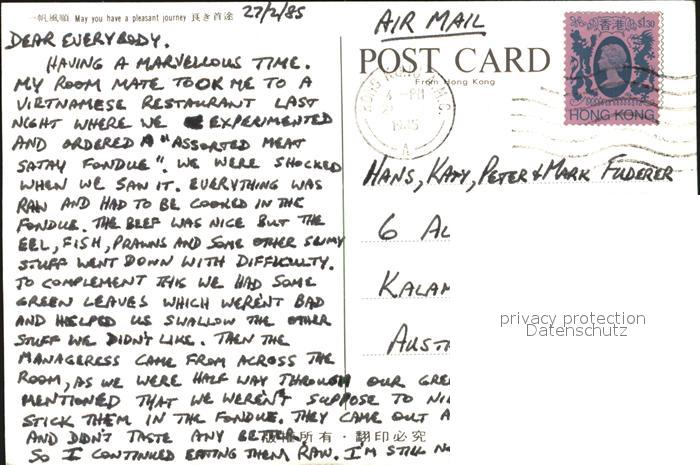 一帆風順 May you have a pleasant journey 良き首途
27/2/85
DEAR EVERYBODY.
HAVING A MARVELLOUS TIME.
MY ROOM MATE TOOK ME TO A
VIETNAMESE RESTAURANT LAST
NIGHT WHERE WE EXPERIMENTED
AND ORDERED A "ASSORTED MEAT
SATAY FONDUE". WE WERE SHOCKED
WHEN WE SAW IT. EVERYTHING WAS
RAW AND HAD TO BE COOKED IN THE
FONDUE. THE BEEF WAS NICE BUT THE
EEL, FISH, PRAWNS AND SOME OTHER SLIMY
STUFF WENT DOWN WITH DIFFICULTY.
TO COMPLEMENT THIS WE HAD SOME
GREEN LEAVES WHICH WEREN'T BAD
AND HELPED US SWALLOW THE OTHER
STUFF WE DIDN'T LIKE. THEN THE
MANAGERESS CAME FROM ACROSS THE
ROOM, AS WE WERE HALF WAY THROUGH OUR GRE
MENTIONED THAT WE WEREN'T SUPPOSE TO
STICK THEM IN THE FONDUE. THEY CAME OUT A
AND DIDN'T TASTE ANY BETTER.
SO I CONTINUED EATING THEM RAW. I'M STILL
版權所有·翻印必究
AIR MAIL
POST CARD
From Hong Kong
香港 $1.30
HONG KONG
1985
A
HANS, KATY, PETER & MARK FUDERER
6 AL
KALAM
AUST
privacy protection
Datenschutz